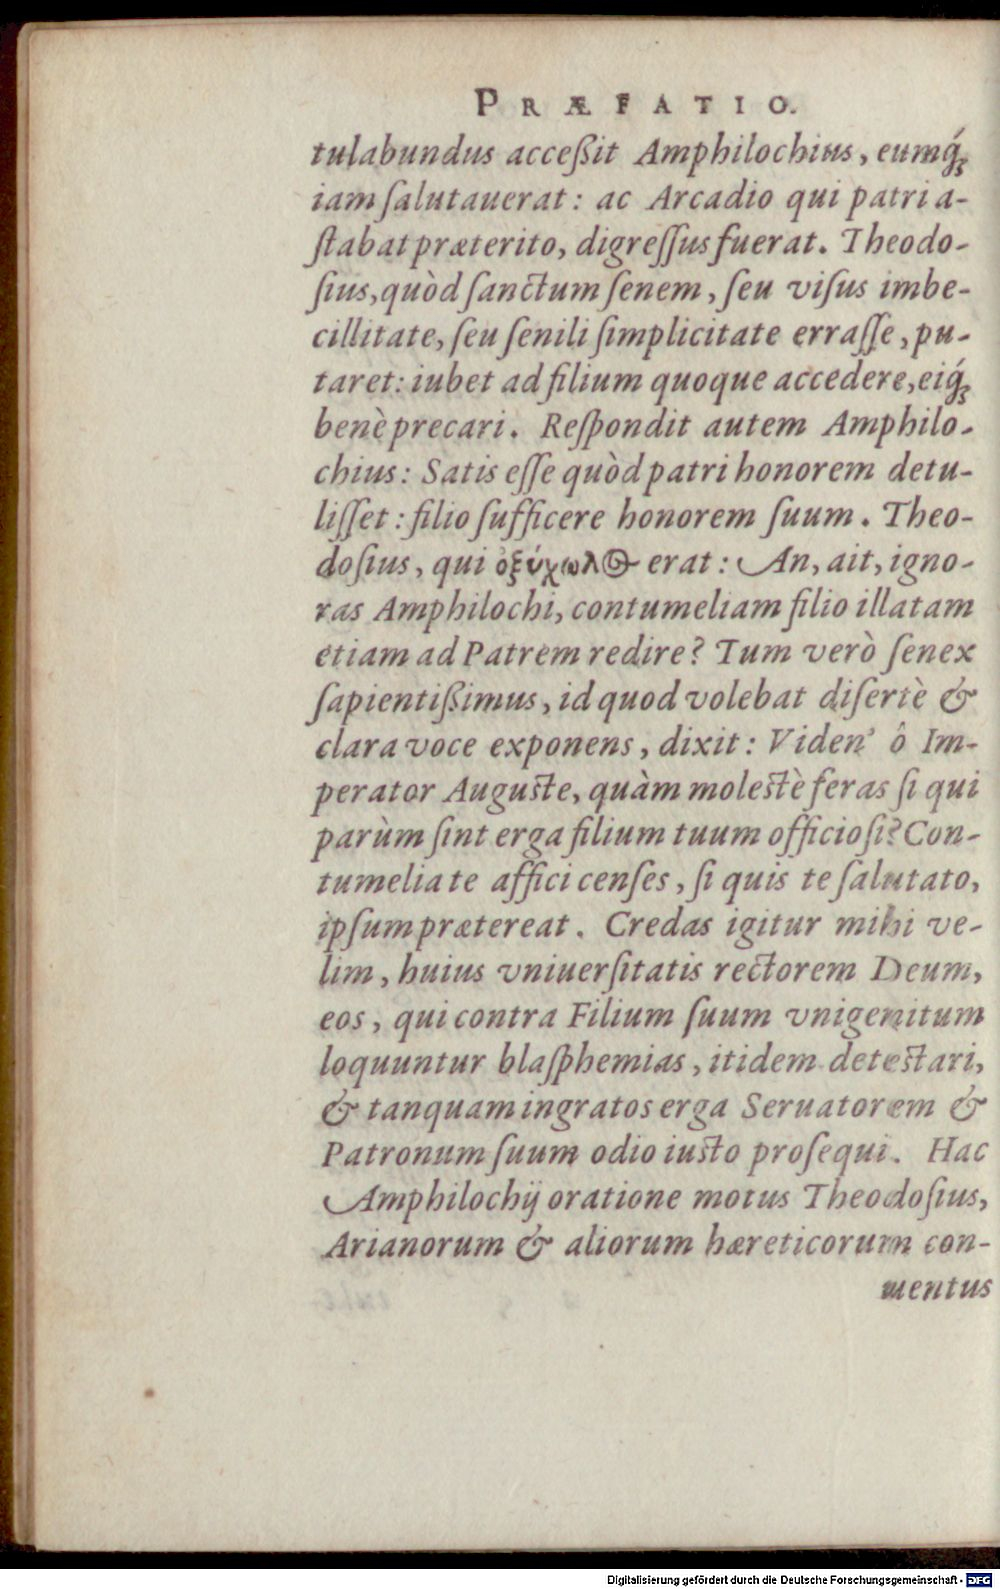 PRÆFATIO.
tulabundus acceßit Amphilochius, eumq́;
iam ſalutauerat: ac Arcadio qui patri a-
ſtabat præterito, digreſſus fuerat. Theodo-
ſius, quòd ſanctum ſenem, ſeu viſus imbe-
cillitate, ſeu ſenili ſimplicitate erraſſe, pu-
taret: iubet ad filium quoque accedere, eiq́;
benè precari. Reſpondit autem Amphilo-
chius: Satis eſſe quòd patri honorem detu-
liſſet: filio ſufficere honorem ſuum. Theo-
doſius, qui ὀξύχωλος erat: An, ait, igno-
ras Amphilochi, contumeliam filio illatam
etiam ad Patrem redire? Tum verò ſenex
ſapientißimus, id quod volebat diſertè &
clara voce exponens, dixit: Viden' ô Im-
perator Auguſte, quàm moleſtè feras ſi qui
parùm ſint erga filium tuum officioſi? Con-
tumelia te affici cenſes, ſi quis te ſalutato,
ipſum prætereat. Credas igitur mihi ve-
lim, huius vniuerſitatis rectorem Deum,
eos, qui contra Filium ſuum vnigenitum
loquuntur blaſphemias, itidem deteſtari,
& tanquam ingratos erga Seruatorem &
Patronum ſuum odio iuſto proſequi. Hac
Amphilochij oratione motus Theodoſius,
Arianorum & aliorum hæreticorum con-
uentus
Digitalisierung gefördert durch die Deutsche Forschungsgemeinschaft - DFG